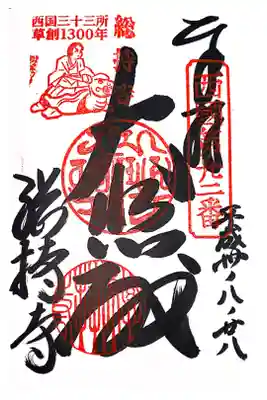 奉拝
西国廿二番
平成卅ノ八ノ廿八
西国三十三所
草創1300年
総持寺
大悲殿
総持寺